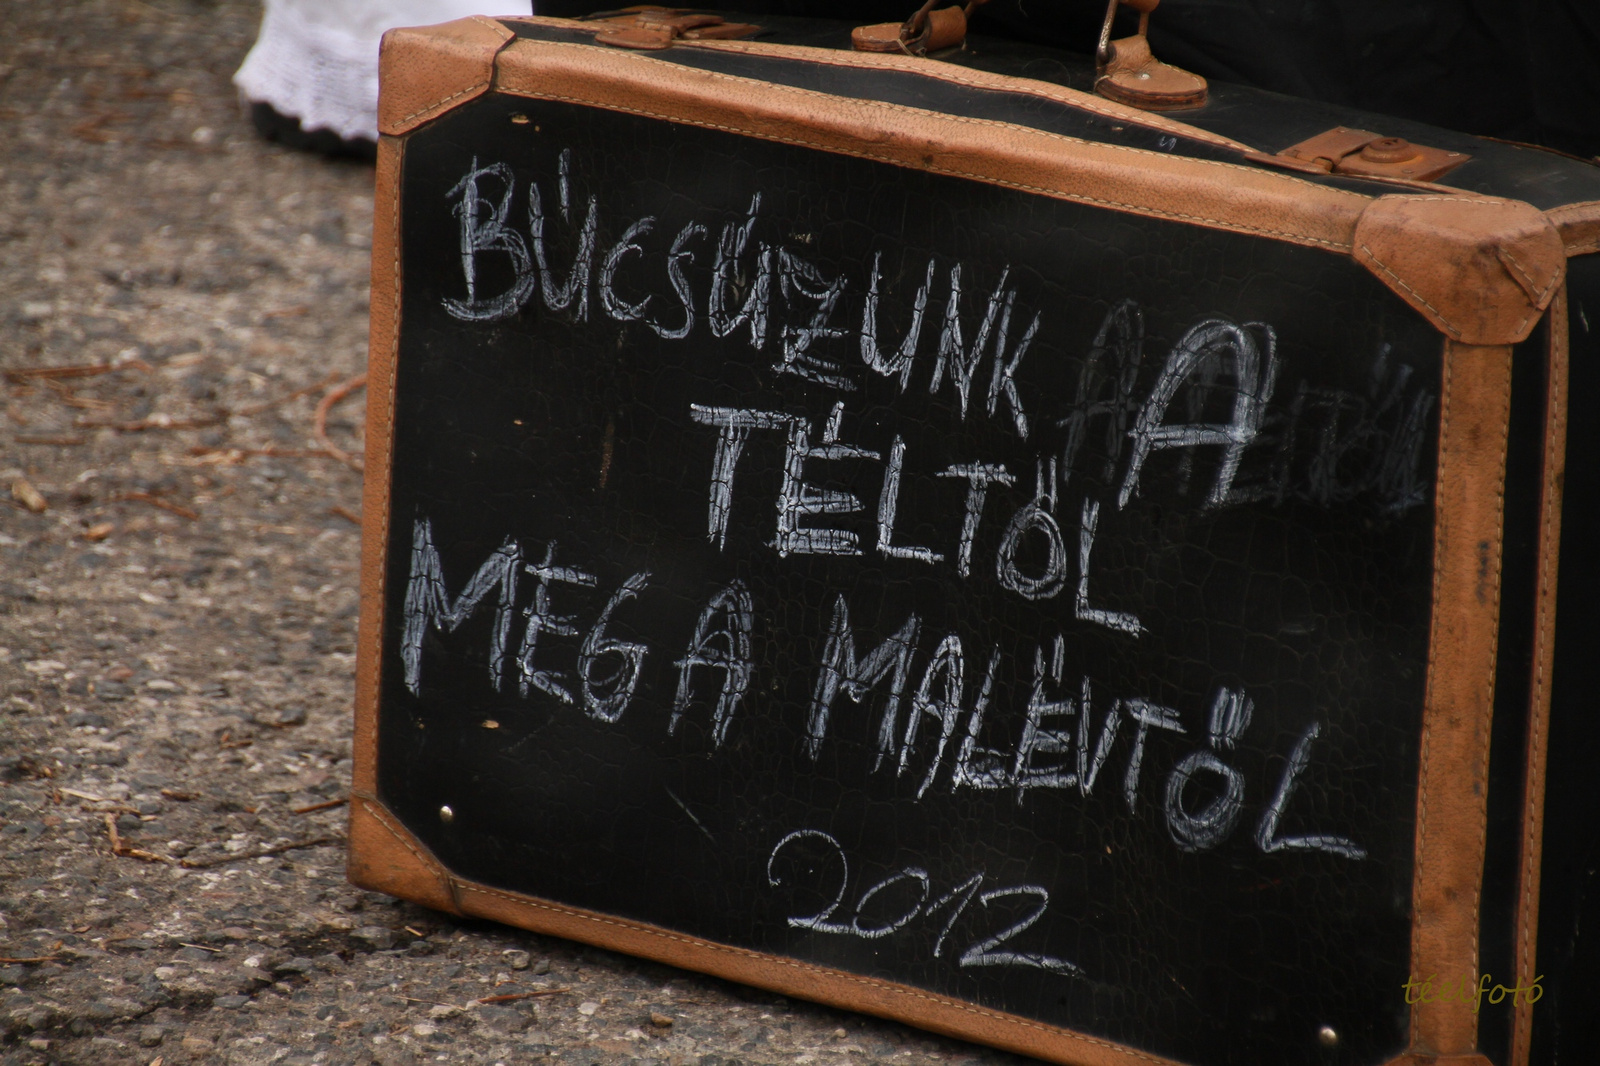 BÚCSÚZUNK A
TÉLTÖL
MÉG A MALÉVTÖL
2012
téelfotó